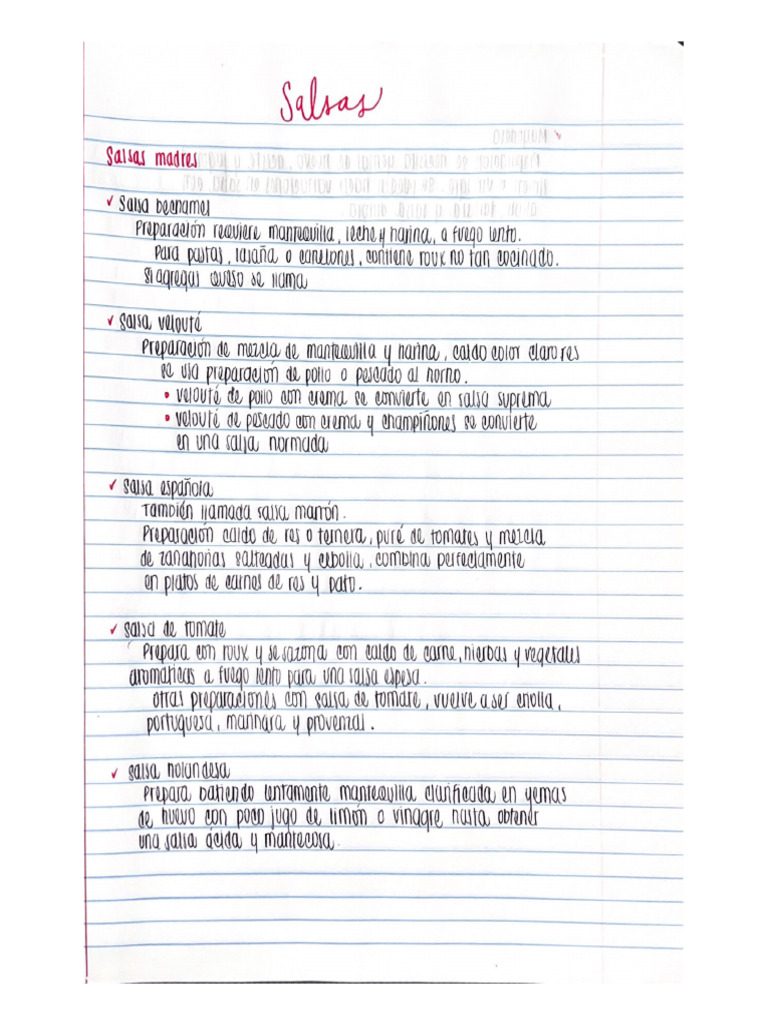 Salsas
Salsas madres
✓ Salsa bechamel
Preparación requiere mantequilla, leche y harina, a fuego lento.
Para pastas, lasaña o canelones, contiene roux no tan cocinado.
Si agregas queso se llama
✓ Salsa velouté
Preparación de mezcla de mantequilla y harina, caldo color claro res
se usa preparación de pollo o pescado al horno.
• velouté de pollo con crema se convierte en salsa suprema
• velouté de pescado con crema y champiñones se convierte
en una salsa normada
✓ Salsa española
También llamada salsa marrón.
Preparación caldo de res o ternera, puré de tomates y mezcla
de zanahorias salteadas y cebolla, combina perfectamente
en platos de carnes de res y pato.
✓ Salsa de tomate
Prepara con roux y se sazona con caldo de carne, hierbas y vegetales
aromáticas a fuego lento para una salsa espesa.
otras preparaciones con salsa de tomate, vuelve a ser criolla,
portuguesa, marinara y provenzal.
✓ Salsa holandesa
Prepara batiendo lentamente mantequilla clarificada en yemas
de huevo con poco jugo de limón o vinagre hasta obtener
una salsa ácida y mantecosa.